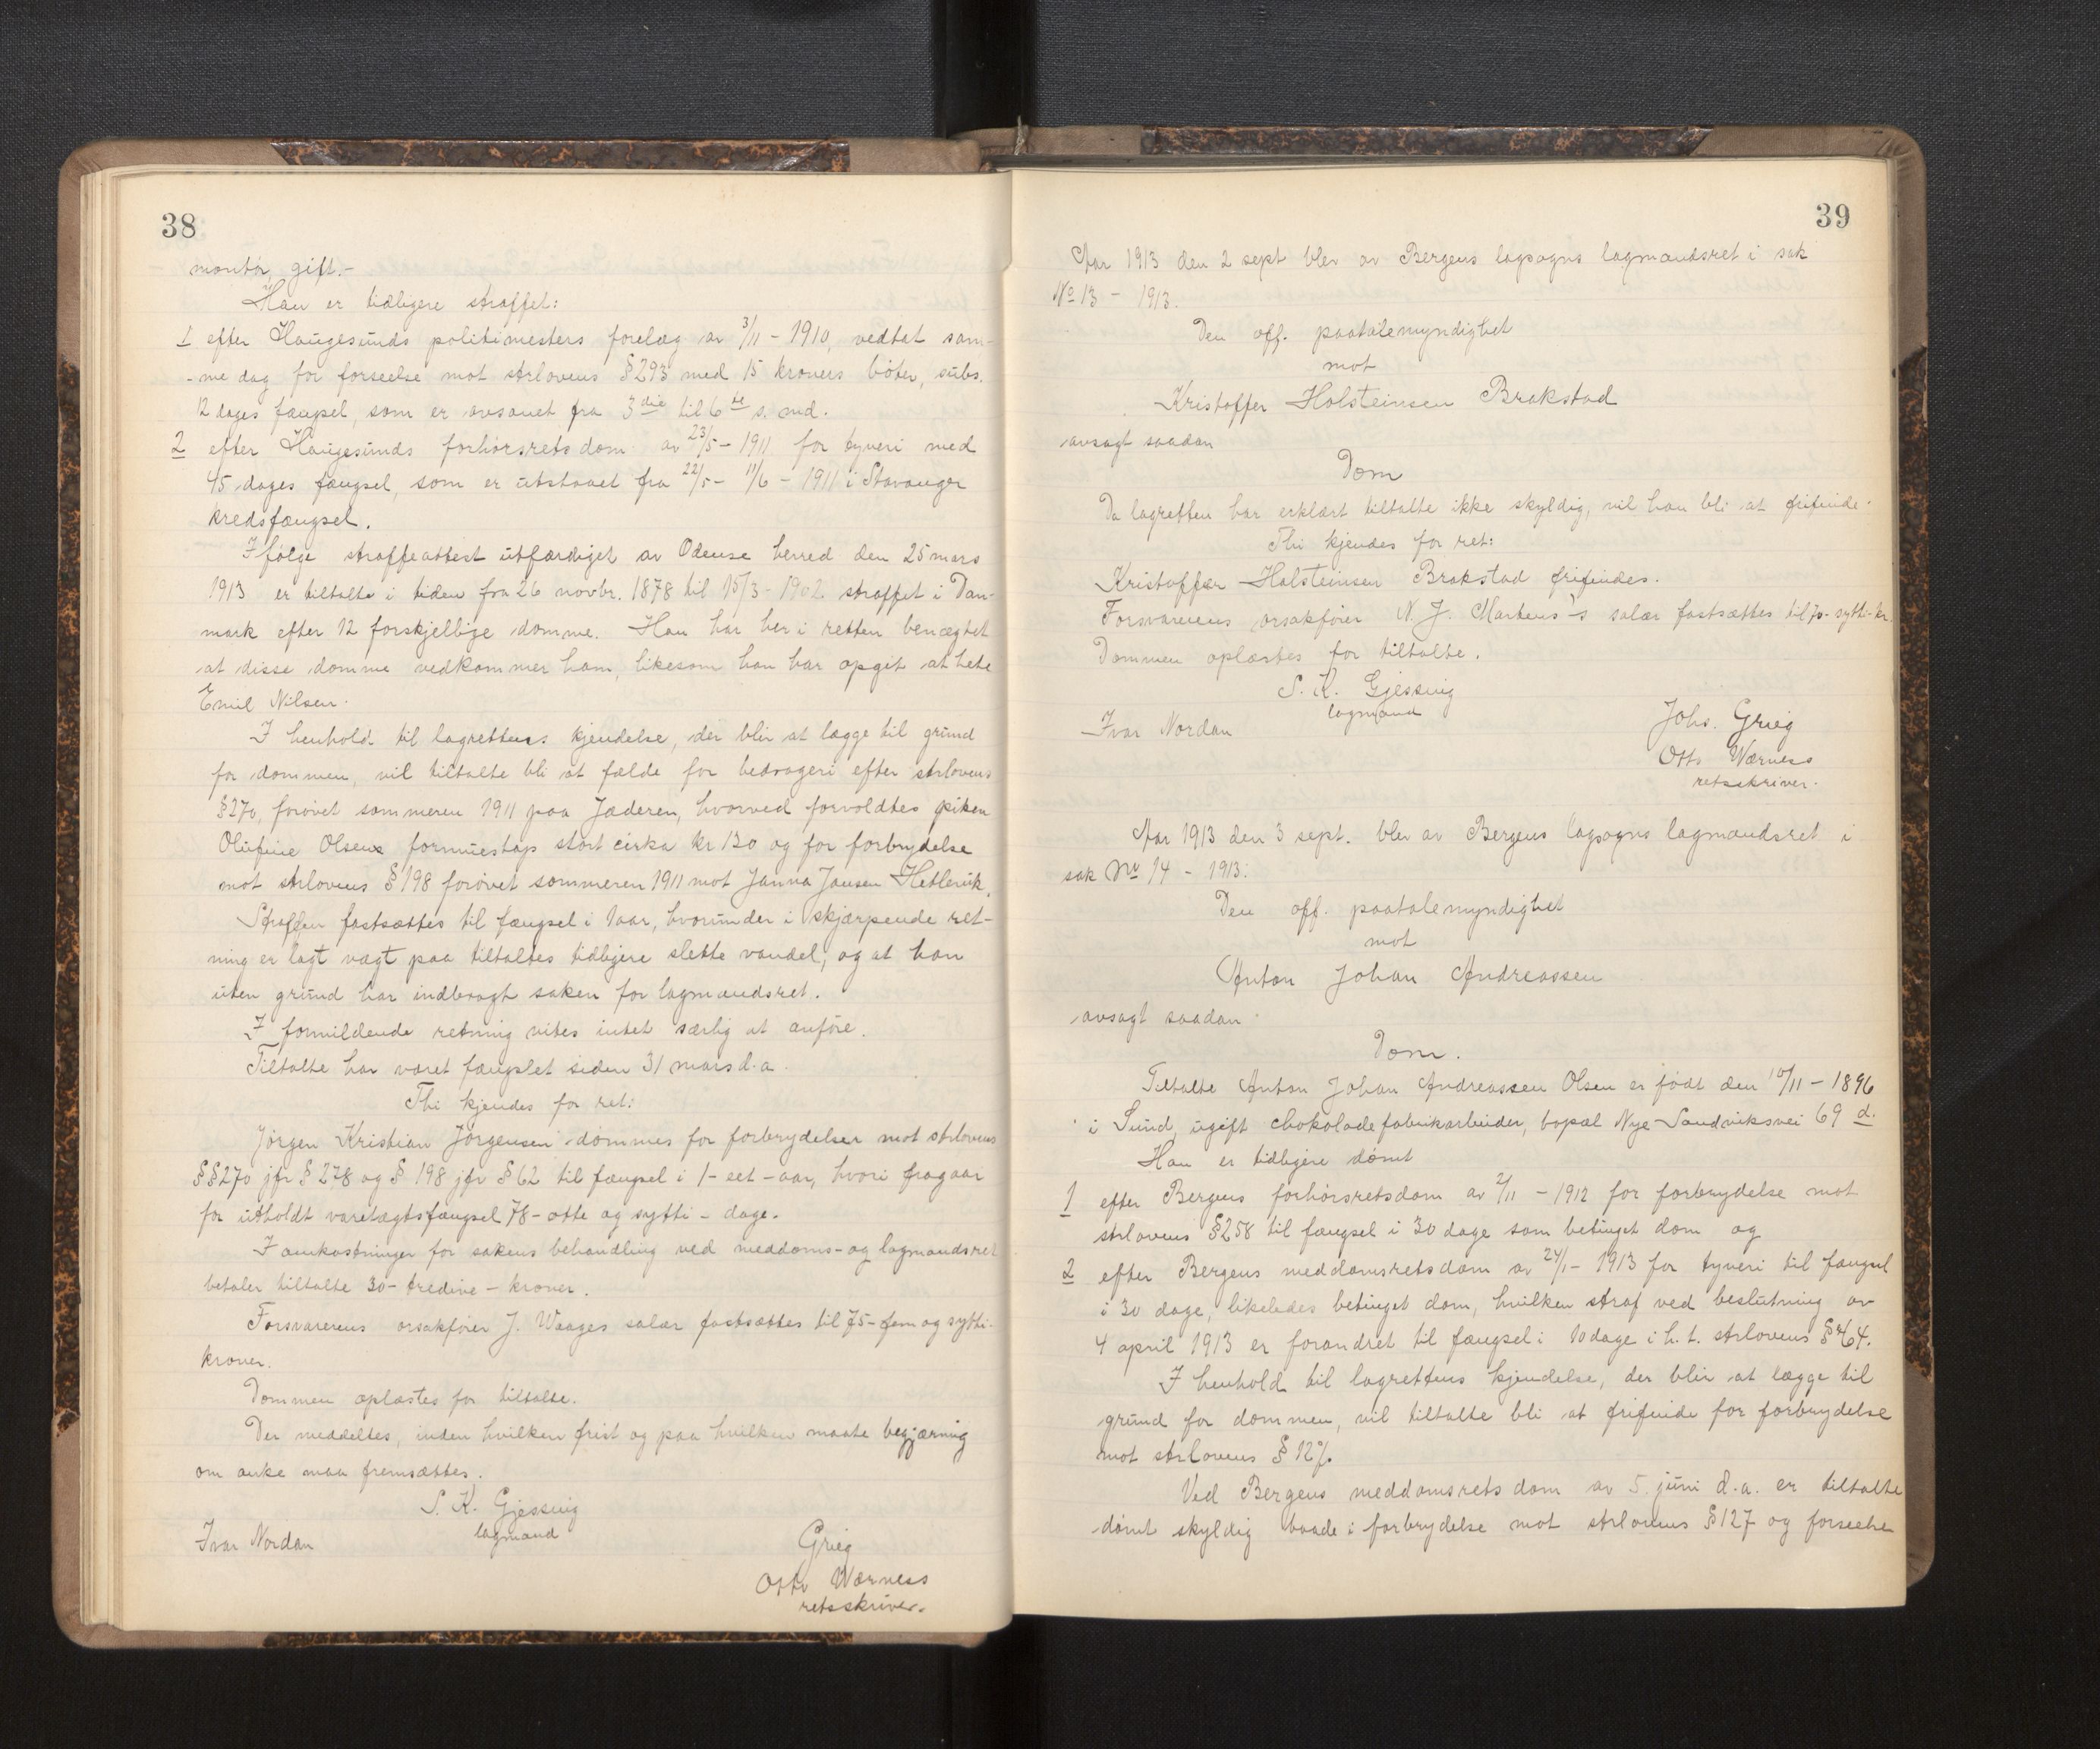 38
montör, gift.-
Han er tidligere straffet:
1 efter Haugesunds politimesters forelæg av 3/11 - 1910, vedtat sam-
-me dag for forseelse mot strlovens § 293 med 15 kroners böter, subs.
12 dages fængsel, som er avsonet fra 3die til 6te s. md.
2 efter Haugesunds forhörsrets dom av 23/5 - 1911 for tyveri med
45 dages fængsel, som er utstaaet fra 22/5 - 11/6 - 1911 i Stavanger
kredsfængsel.
Ifölge straffeattest utfærdiget av Odense herred den 25 mars
1913 er tiltalte i tiden fra 26 novbr. 1878 til 15/3 - 1902 straffet i Dan-
mark efter 12 forskjellige domme. Han har her i retten benægtet
at disse domme vedkommer ham, likesom han har opgit at hete
Emil Nilsen.
I henhold til lagrettens kjendelse, der blir at lægge til grund
for dommen, vil tiltalte bli at fælde for bedrageri efter strlovens
§ 270, forövet sommeren 1911 paa Jæderen, hvorved forvoldtes piken
Olufine Olsens formuestap stort cirka kr 130 og for forbrydelse
mot strlovens § 198 forövet sommeren 1911 mot Janna Jansen
Straffen fastsættes til fængsel i 1 aar, hvorunder i skjærpende ret-
ning er lagt vægt paa tiltaltes tidligere slette vandel, og at han
uten grund har indbragt saken for lagmandsret.
I formildende retning vites intet særlig at anföre.
Tiltalte har været fængslet siden 31 mars d.a.
Thi kjendes for ret:
Jörgen Kristian Jörgensen dömmes for forbrydelser mot strlovens
§§ 270 jfr § 278 og § 198 jfr § 62 til fængsel i 1 - eet - aar, hvori fragaar
for utholdt varetægtsfængsel 78 - otte og sytti - dage.
I omkostninger for sakens behandling ved meddoms- og lagmandsret
betaler tiltalte 30 - tredive - kroner.
Forsvarerens orsakförer J. Waages salær fastsættes til 75 - fem og sytti -
kroner.
Dommen oplæstes for tiltalte.
Der meddeltes, inden hvilken frist og paa hvilken maate begjæring
om anke maa fremsættes.
S. K. Gjessing
lagmand
Ivar Nordan
Grieg
Otto Wærness
retsskriver.
39
Aar 1913 den 2 sept blev av Bergens lagsogns lagmandsret i sak
No 13 - 1913.
Den off. paatalemyndighet
mot
Kristoffer Holsteinsen Brakstad
avsagt saadan
Dom
Da lagretten har erklært tiltalte ikke skyldig, vil han bli at frifinde.
Thi kjendes for ret:
Kristoffer Holsteinsen Brakstad frifindes.
Forsvarerens orsakförer N. J. Martens's salær fastsættes til 70 - sytti - kr.
Dommen oplæstes for tiltalte.
S. K. Gjessing
lagmand
Ivar Nordan
Johs. Grieg
Otto Wærness
retsskriver.
Aar 1913 den 3 sept. blev av Bergens lagsogns lagmandsret i
sak Nr 14 - 1913.
Den off. paatalemyndighet
mot
Anton Johan Andreassen
avsagt saadan
Dom.
Tiltalte Anton Johan Andreassen Olsen er födt den 10/11 - 1896
i Sund, ugift chokoladefabrikarbeider, bopæl Nye Sandviksvei 69 d.
Han er tidligere dömt
1 efter Bergens forhörsretsdom av 2/11 - 1912 for forbrydelse mot
strlovens § 258 til fængsel i 30 dage som betinget dom og
2 efter Bergens meddomsretsdom av 24/1 - 1913 for tyveri til fængsel
i 30 dage, likeledes betinget dom, hvilken straf ved beslutning av
4 april 1913 er forandret til fængsel i 10 dage i h. t. strlovens § 64.
I henhold til lagrettens kjendelse, der blir at lægge til
grund for dommen, vil tiltalte bli at frifinde for forbrydelse
mot strlovens § 127.
Ved Bergens meddomsrets dom av 5. juni d.a. er tiltalte
dömt skyldig baade i forbrydelse mot strlovens § 127 og forseelse